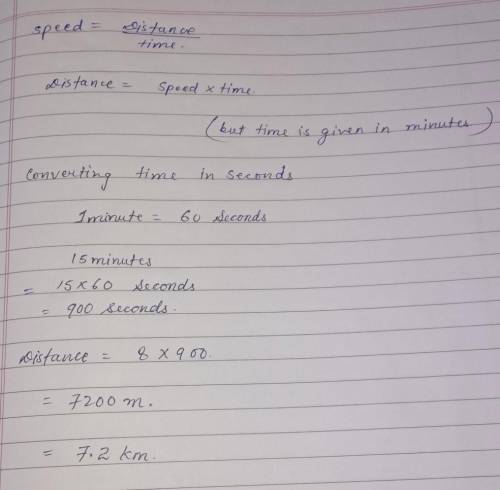 speed = Distance
time.
Distance = Speed × time.
(but time is given in minutes)
Converting time in Seconds
1minute = 60 Seconds
15 minutes
= 15 × 60 Seconds
= 900 Seconds.
Distance = 8 × 900.
= 7200 m.
= 7.2 km.